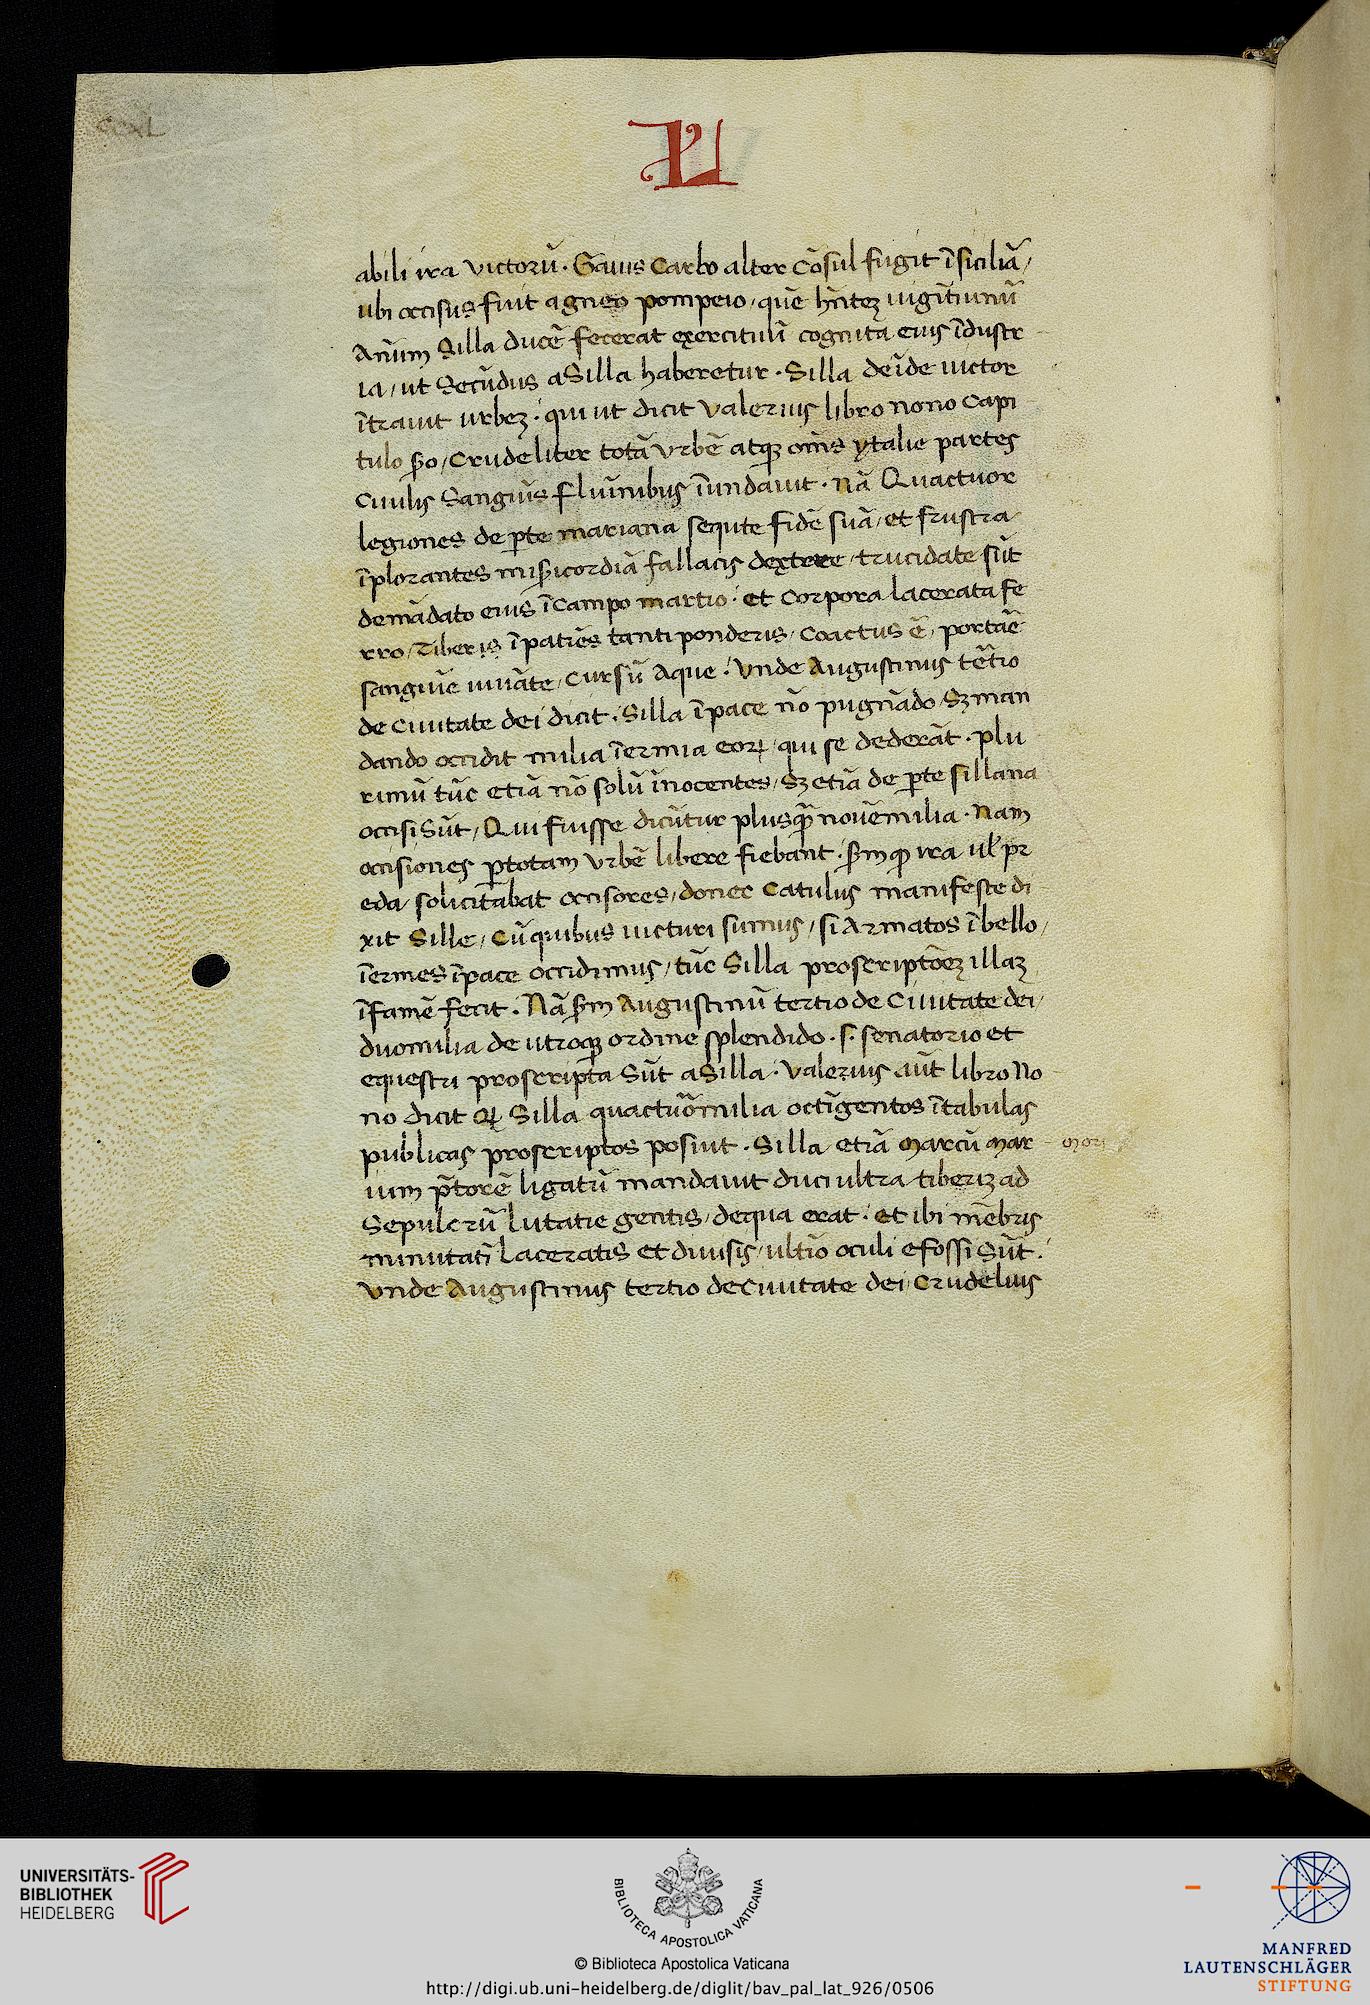 CCXL
L
abili ira victorū. Gaius Carbo alter cōsul fugit ī siciliā /
ubi occisus fuit a gneo pompeio / quē hn̄tez uigītiunū
Anūm Silla ducē fecerat exercituū cognita eius īdustr
ia / ut Secūdus a Silla haberetur. Silla deīde uictor
ītrauit urbez. qui ut dicit Valerius libro nono Capi
tulo sᷣo / Crudeliter totā Vrbē atqꝫ om̄s ytalie partes
Ciuilis Sanguīs fluīnibus īundauit. nā Quactuor
legiones de ꝑte mariana sequte fidē suā / et frustra
īplorantes miẜicordiā fallacis dextere / trucidate sūt
de mādato eius ī Campo martio. et Corpora lacerata fe
rro / Tiberis īpatiēs tanti ponderis / Coactus ē / portāe
sanguīe iuuāte / Cursū Aque. Vnde Augustinus tētio
de Ciuitate dei dicit. Silla ī pace nō pugnādo / Sꝫ man
dando occidit milia īermia eoꝝ / qui se dederāt. plu
rimū tūc etiā nō solū īnocentes / Sꝫ etiā de ꝑte sillana
occisi Sūt / Qui fuisse dicūtur plusꝙ̄ nouēmilia. Nam
occisiones ꝑ totam Vrbē libere fiebant. ẜm ꝙ ira ul̓ pr
eda solicitabat occisores / donec Catulus manifeste di
xit Sille / Cū quibus uicturi sumus / si Armatos ī bello /
īermes ī pace occidimus / tūc Silla proscriptōez illaz
īfamē fecit. Nā ẜm Augustinū tertio de Ciuitate dei /
duomilia de utroqꝫ ordine splendido. s. senatorio et
equestri proscripta Sūt a Silla. Valerius aūt libro No
no dicit ꝙ Silla quactuōmilia octīgentos ī tabulas
publicas proscriptos posiut. Silla etiā Marcū Mar
ium p̄torē ligatū mandauit duci ultra tiberiz ad
Sepulcrū lutatie gentis / de qua erat. et ibi mēbris
minutatī laceratis et diuisis / ultīo oculi effossi Sūt.
Vnde Augustinus tertio de Ciuitate dei / Crudelius
UNIVERSITÄTS-
BIBLIOTHEK
HEIDELBERG
BIBLIOTECA APOSTOLICA VATICANA
© Biblioteca Apostolica Vaticana
http://digi.ub.uni-heidelberg.de/diglit/bav_pal_lat_926/0506
MANFRED
LAUTENSCHLÄGER
STIFTUNG